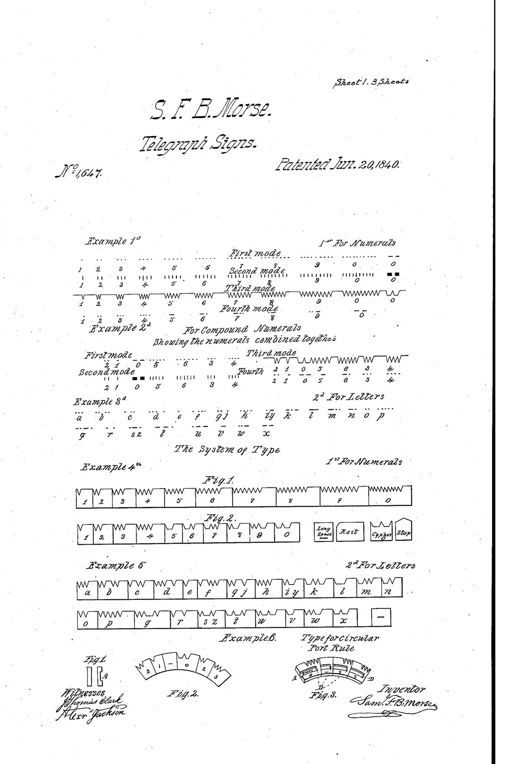 Sheet 1. 3 Sheets
S. F. B. Morse.
Telegraph Signs.
No. 1,647. Patented Jun. 20, 1840.
Example 1st 1st For Numerals
First mode
1 2 3 4 5 6 7 8 9 0 0
Second mode
1 2 3 4 5 6 7 8 9 0 0
Third mode
1 2 3 4 5 6 7 8 9 0 0
Fourth mode
1 2 3 4 5 6 7 8 9 0
Example 2d For Compound Numerals
Showing the numerals combined together
First mode Third mode
2 1 0 5 6 3 4 2 1 0 5 6 3 4
Second mode Fourth
2 1 0 5 6 3 4 2 1 0 5 6 3 4
Example 3d 2d For Letters
a b c d e f gj h iy k l m n o p
q r sz t u v w x
The System of Type
Example 4th 1st For Numerals
Fig. 1.
1 2 3 4 5 6 7 8 9 0
Fig. 2.
1 2 3 4 5 6 7 8 9 0 Long Space Rest Cypher Stop
Example 5 2d For Letters
a b c d e f gj h iy k l m n
o p q r sz t u v w x
Example 6. Type for Circular
Port Rule
Fig 1
A
2 1 0 2 3
Fig. 2.
A B D
Fig. 3.
Witnesses
Thomas Clark
Alexr Jackson
Inventor
Saml. F. B. Morse